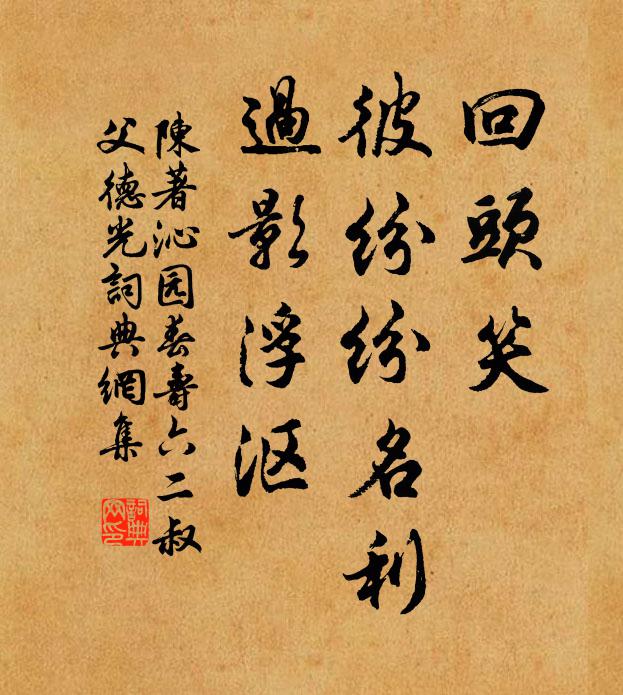 回頭笑
彼紛紛名利
過影浮沤
陳著沁园春壽六二叔
父德光詞典網集
詞典网印